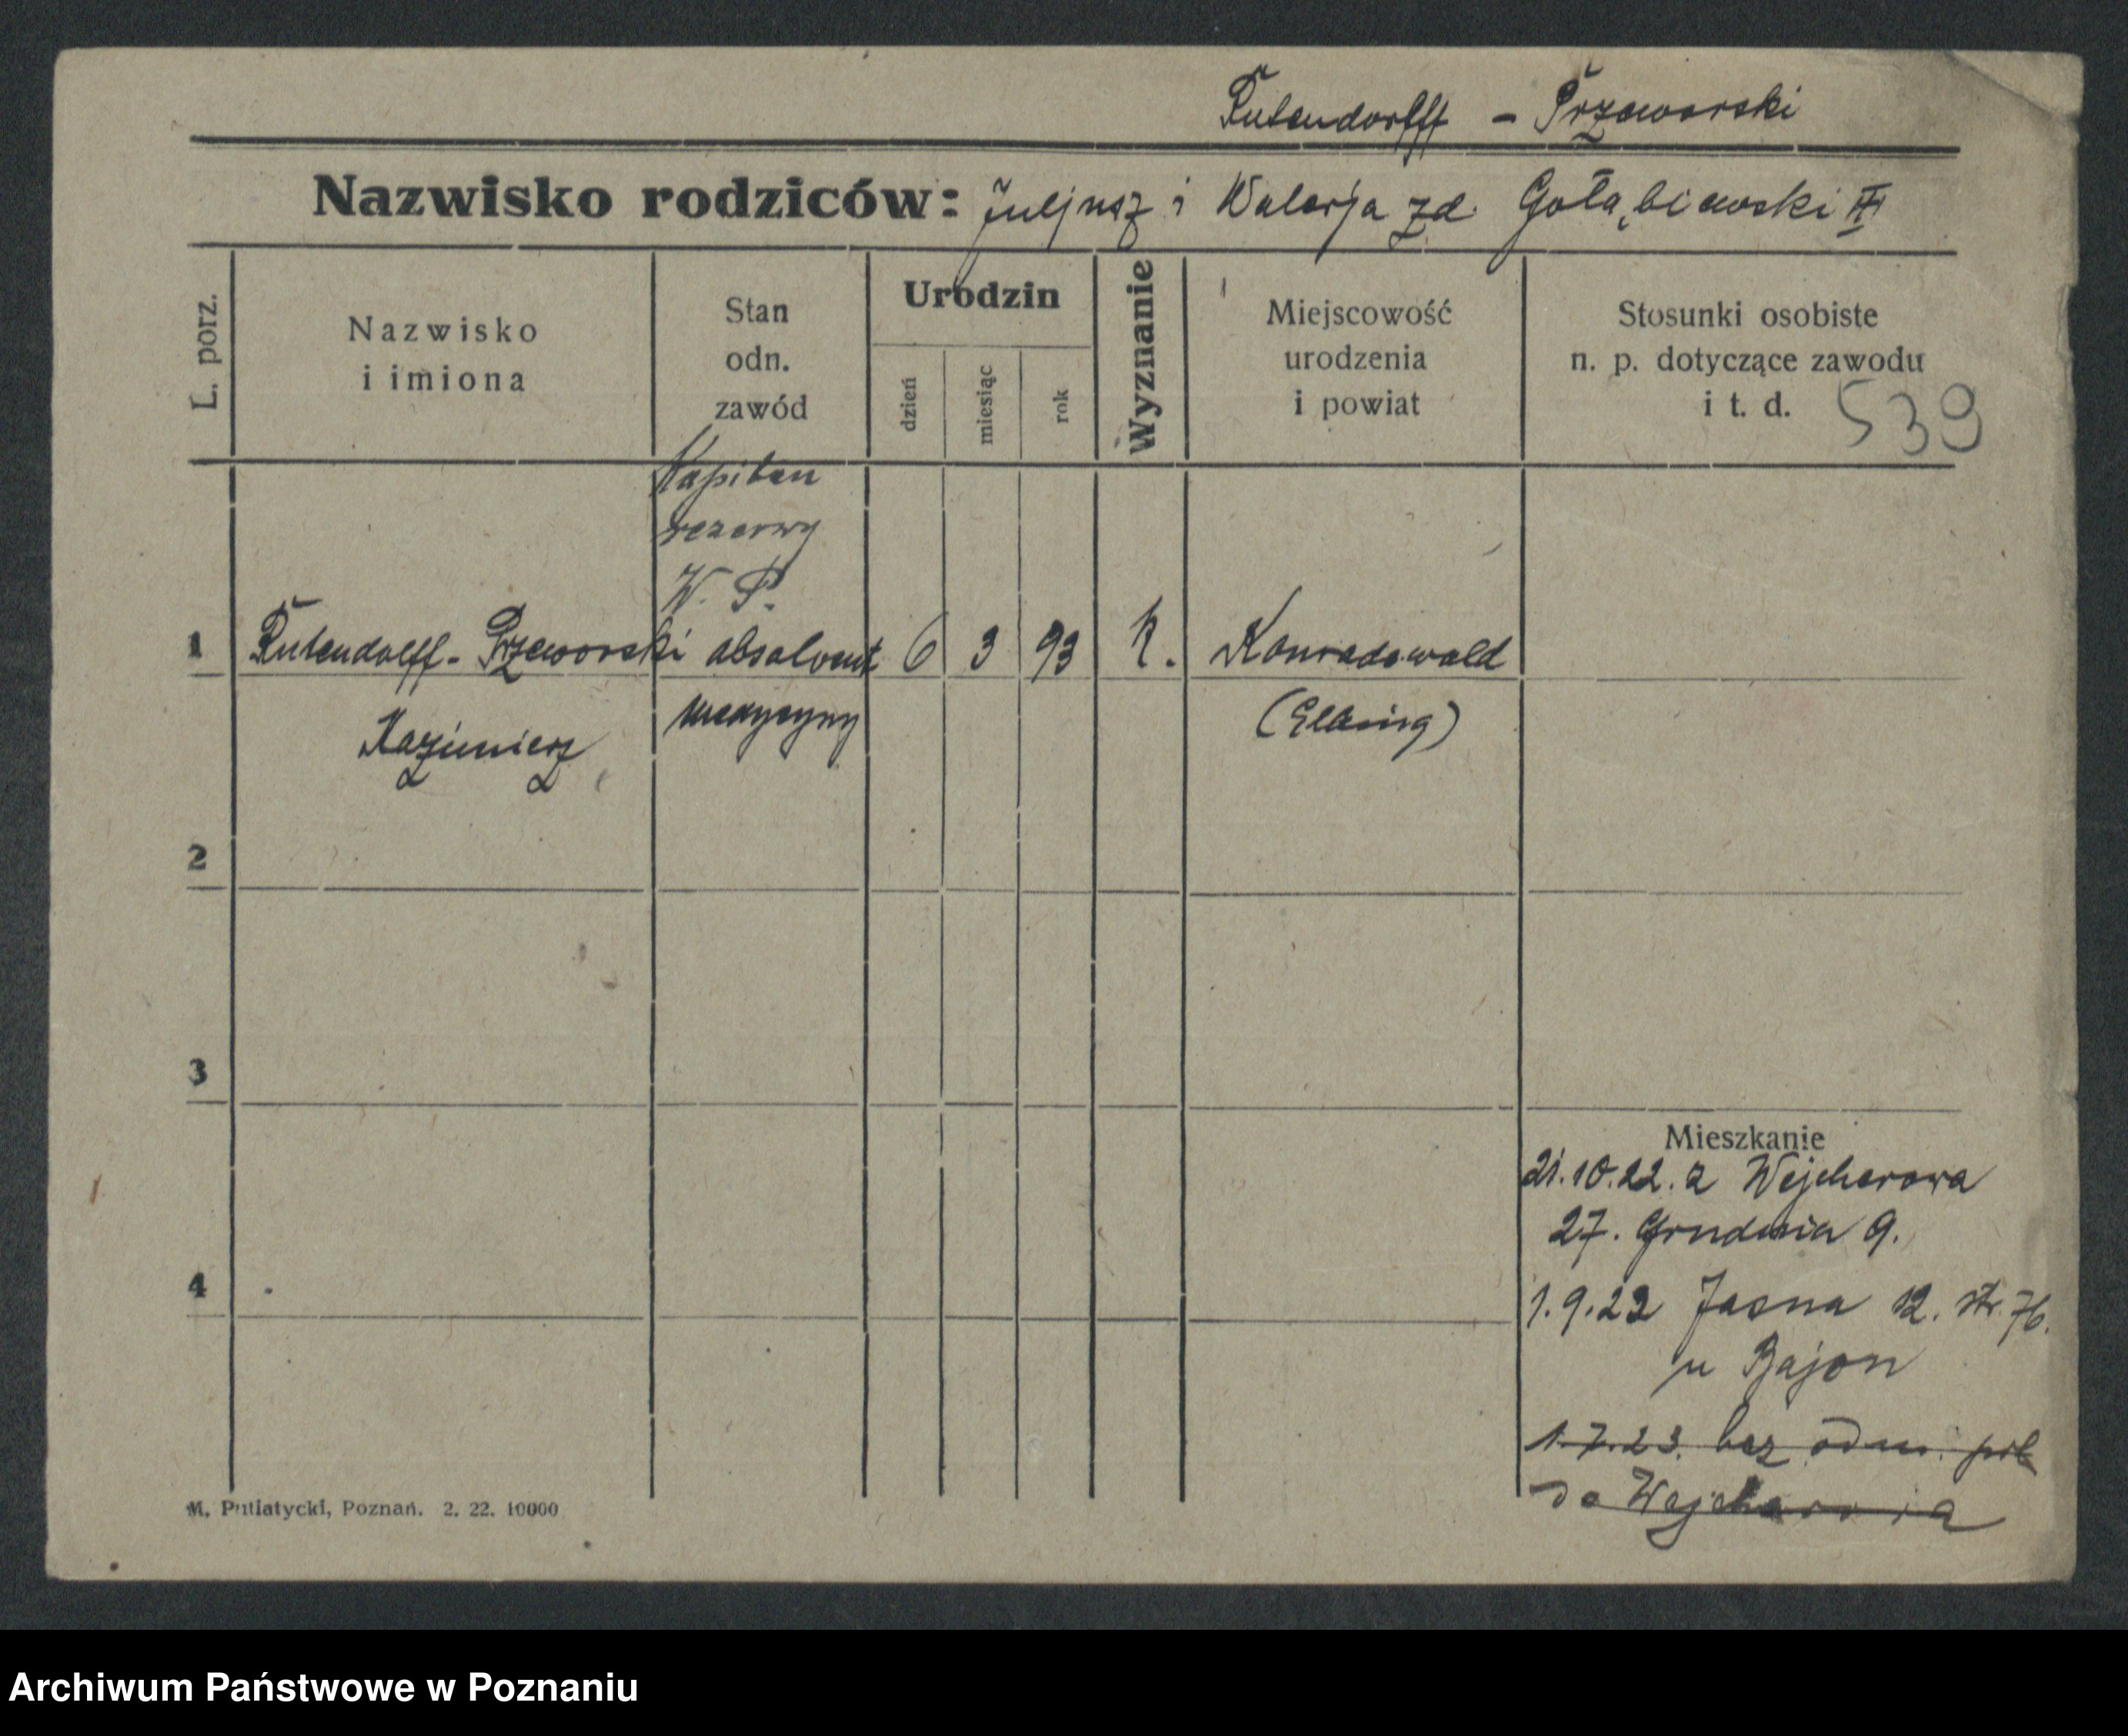 Putendorfff - Przeworski
Nazwisko rodziców: Juljusz i Walerja zd. Gołąbiewski III
L. porz.
Nazwisko
i imiona
Stan
odn.
zawód
Urodzin
dzień
miesiąc
rok
Wyznanie
Miejscowość
urodzenia
i powiat
Stosunki osobiste
n. p. dotyczące zawodu
i t. d.
539
Kapitan
rezerwy
W. P.
1 Putendorff- Przeworski absolvent 6 3 93 k. Konradswald
Kazimierz medycyny (Elbing)
2
3
4
Mieszkanie
21.10.22. z Wejcherowa
27. Grudnia 9.
1.9.22 Jasna 12. str. 76.
u Bajon
1.7.23. bez odm.
do
M. Putiatycki, Poznań. 2. 22. 10000
Archiwum Państwowe w Poznaniu